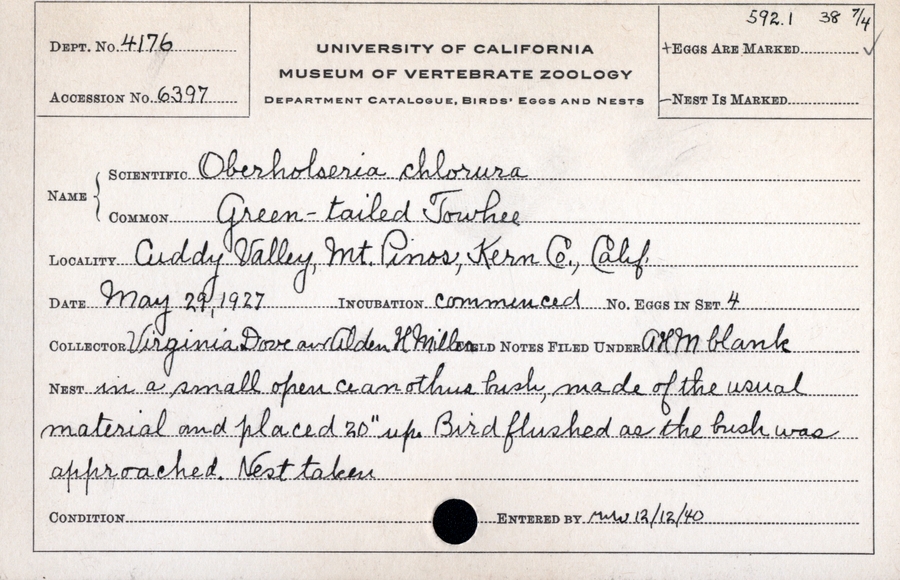 592.1 38 7/4
Dept. No. 4176
UNIVERSITY OF CALIFORNIA
+Eggs Are Marked ✓
MUSEUM OF VERTEBRATE ZOOLOGY
Accession No. 6397
Department Catalogue, Birds' Eggs and Nests
—Nest Is Marked
Name { Scientific Oberholseria chlorura
Common Green-tailed Towhee
Locality Cuddy Valley, Mt. Pinos, Kern Co., Calif.
Date May 29, 1927 Incubation commenced No. Eggs in Set 4
Collector Virginia Dove and Alden H Miller Field Notes Filed Under AHM blank
Nest in a small open ceanothus bush, made of the usual
material and placed 20" up. Bird flushed as the bush was
approached. Nest taken
Condition Entered by 12/12/40